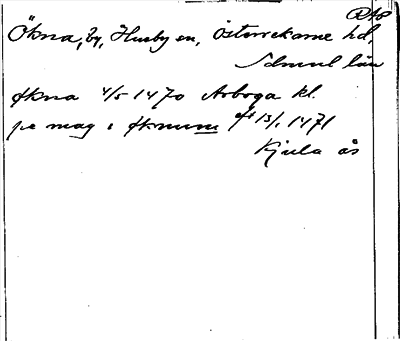 Ökna, by, Husby sn, Österrekarne hd,
Sdmnl län
Økna 4/5 1470 Arboga kl.
pe mag i Øknum 13/1 1471
Kjula ås